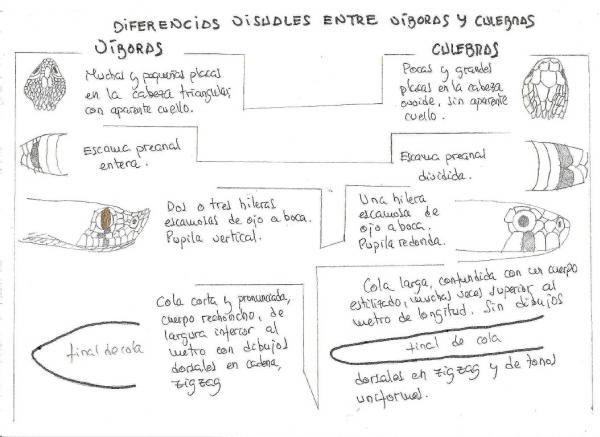 DIFERENCIAS VISUALES ENTRE VÍBORAS Y CULEBRAS
VÍBORAS
Muchas y pequeñas placas
en la cabeza triangular,
con aparente cuello.
Escama preanal
entera.
Dos o tres hileras
escamosas de ojo a boca.
Pupila vertical.
Cola corta y pronunciada,
cuerpo rechoncho, de
largura inferior al
metro con dibujos
dorsales en cadena,
zigzag
final de cola
CULEBRAS
Pocas y grandes
placas en la cabeza
ovoide, sin aparente
cuello.
Escama preanal
dividida.
Una hilera
escamosa de
ojo a boca.
Pupila redonda.
Cola larga, confundida con un cuerpo
estilizado, muchas veces superior al
metro de longitud. Sin dibujos
final de cola
dorsales en zigzag y de tonos
uniformes.